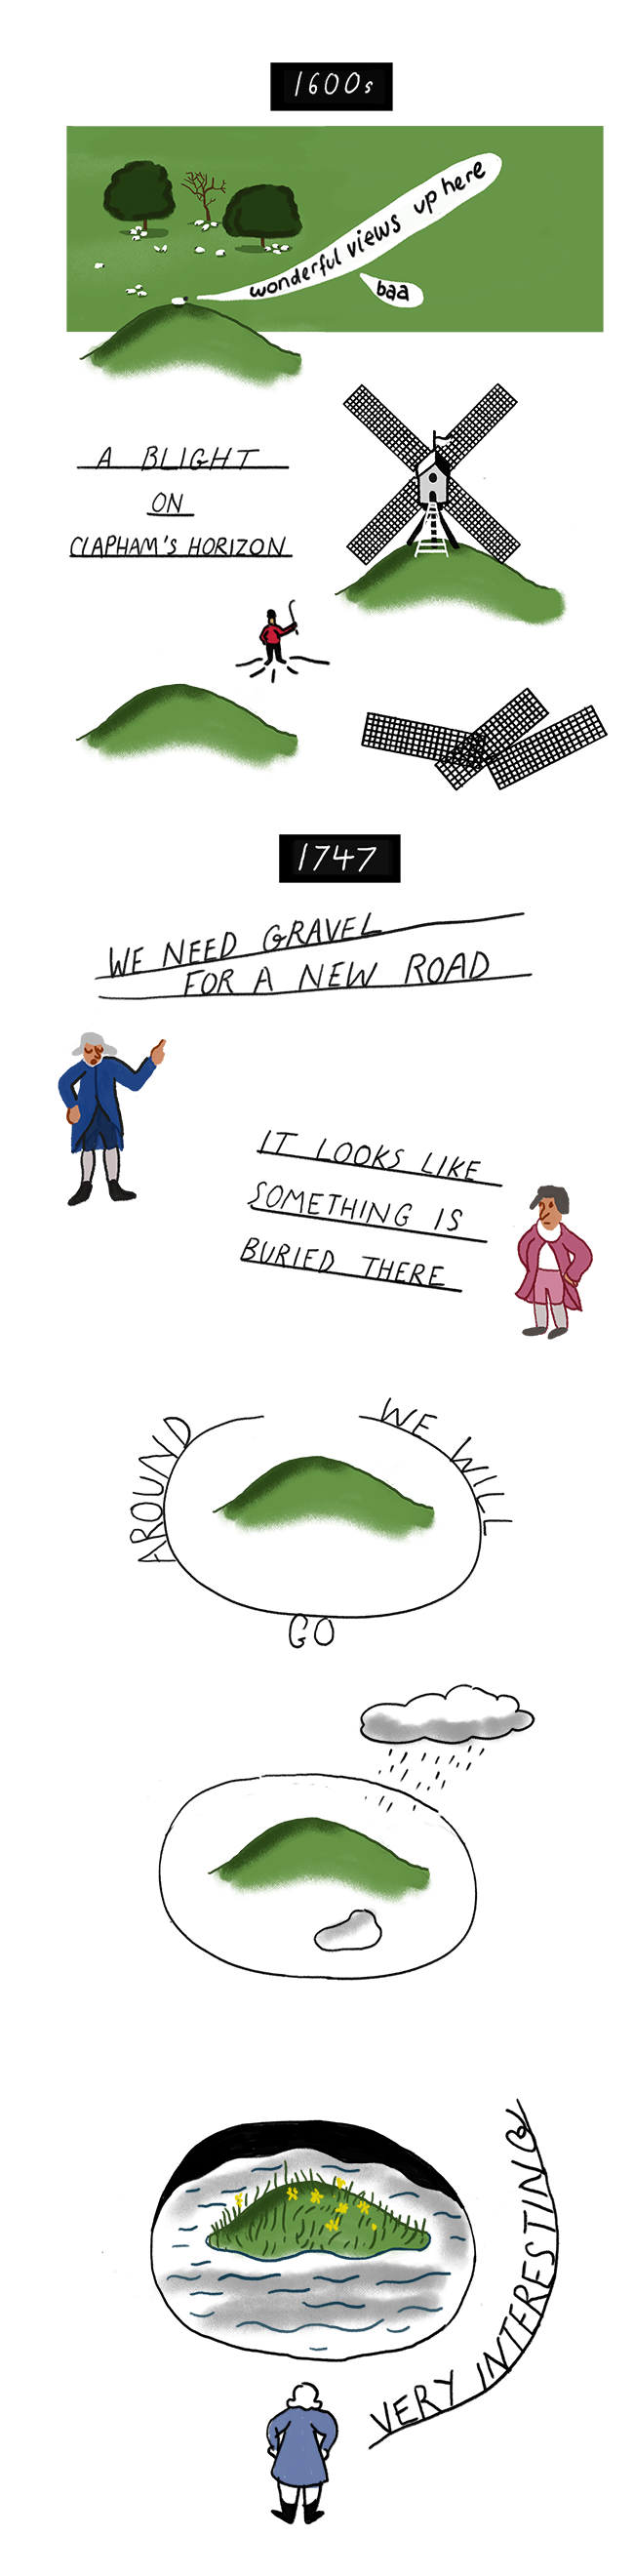 1600s
wonderful views up here
baa
A BLIGHT
ON
CLAPHAM'S HORIZON
1747
WE NEED GRAVEL
FOR A NEW ROAD
IT LOOKS LIKE
SOMETHING IS
BURIED THERE
WE WILL
GO
AROUND
VERY INTERESTING